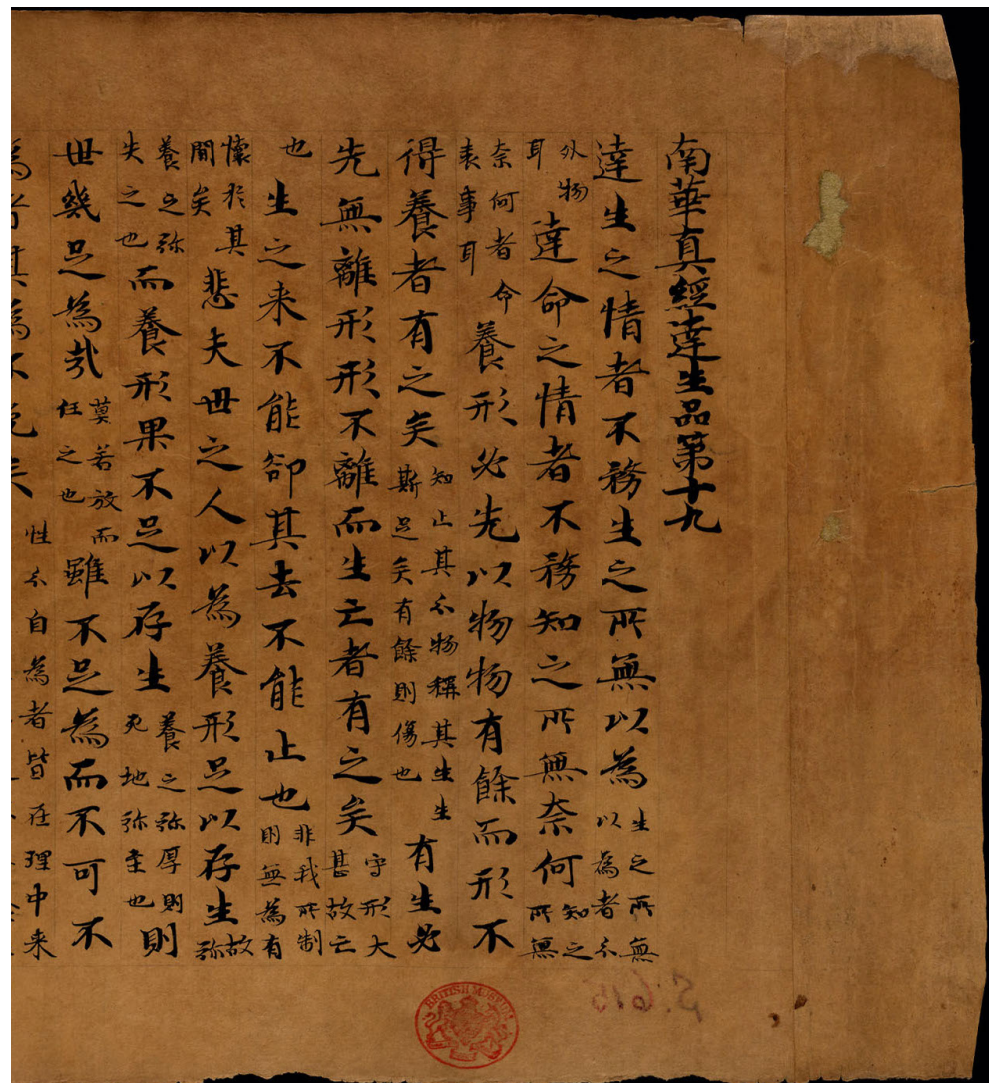 南華真經達生品第十九
達生之情者不務生之所無以為生之所無以為者分
外物耳達命之情者不務知之所無奈何知之所無
奈何者命表事耳養形必先以物物有餘而形不
得養者有之矣知止其分物稱其生生斯足矣有餘則傷也有生必
先無離形形不離而生亡者有之矣守形大甚故亡
也生之来不能卻其去不能止也非我所制則無為有
懷於其間矣悲夫世之人以為養形足以存生故弥
養之弥失之也而養形果不足以存生養之弥厚則死地弥至也則
世幾足為哉莫若放而任之也雖不足為而不可不
為者其為不免矣性分自為者皆在理中来
BRITISH MUSEUM
S.615